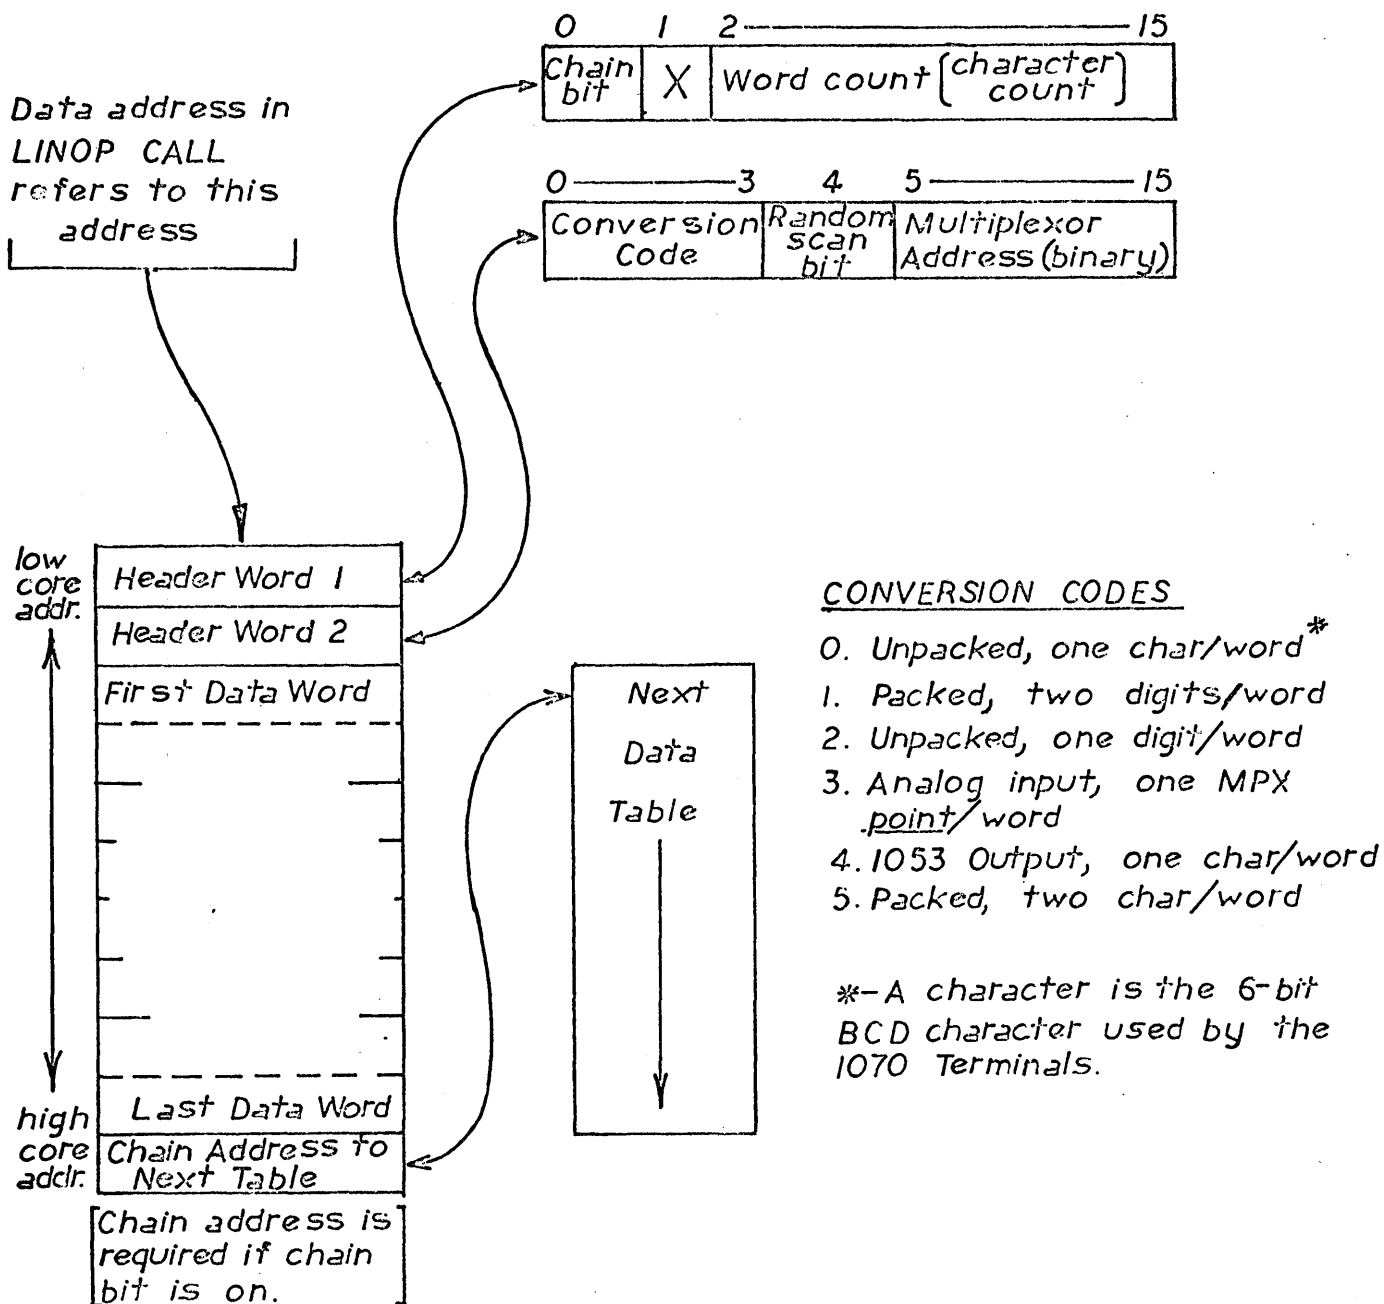 0 1 2 15
Chain bit X Word count (character count)
Data address in
LINOP CALL
refers to this
address
0 3 4 5 15
Conversion Code Random scan bit Multiplexor Address (binary)
low
core
addr.
Header Word 1
Header Word 2
First Data Word
Last Data Word
high
core
addr.
Chain Address to
Next Table
[Chain address is
required if chain
bit is on.]
Next
Data
Table
CONVERSION CODES
0. Unpacked, one char/word*
1. Packed, two digits/word
2. Unpacked, one digit/word
3. Analog input, one MPX
point/word
4. 1053 Output, one char/word
5. Packed, two char/word
*-A character is the 6-bit
BCD character used by the
1070 Terminals.